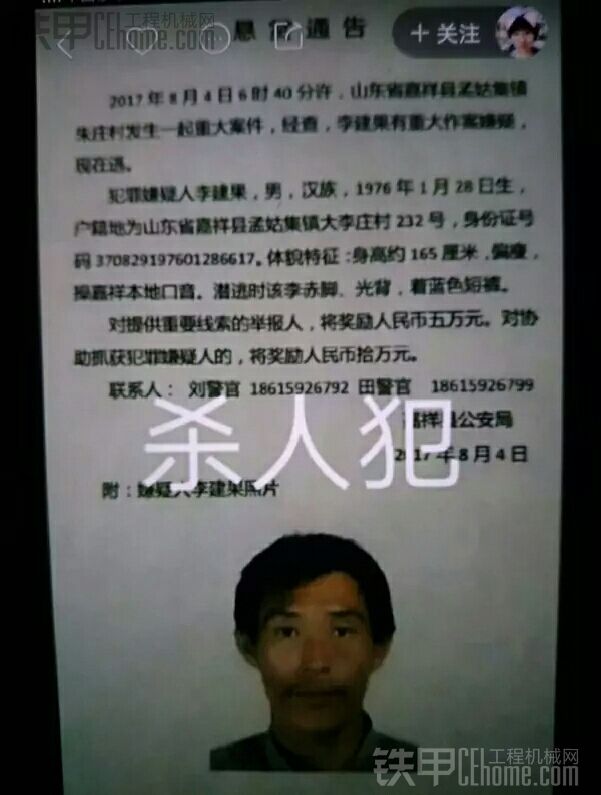 铁甲 工程机械网
CEhome.com
息 通告
+ 关注
2017 年 8 月 4 日 6 时 40 分许，山东省嘉祥县孟姑集镇
朱庄村发生一起重大案件，经查，李建果有重大作案嫌疑，
现在逃。
犯罪嫌疑人李建果，男，汉族，1976 年 1 月 28 日生，
户籍地为山东省嘉祥县孟姑集镇大李庄村 232 号，身份证号
码 370829197601286617。体貌特征：身高约 165 厘米，偏瘦，
操嘉祥本地口音。潜逃时该李赤脚、光背，着蓝色短裤。
对提供重要线索的举报人，将奖励人民币五万元。对协
助抓获犯罪嫌疑人的，将奖励人民币拾万元。
联系人： 刘警官 18615926792 田警官 18615926799
杀人犯
嘉祥县公安局
2017 年 8 月 4 日
附：嫌疑人李建果照片
铁甲 工程机械网
CEhome.com